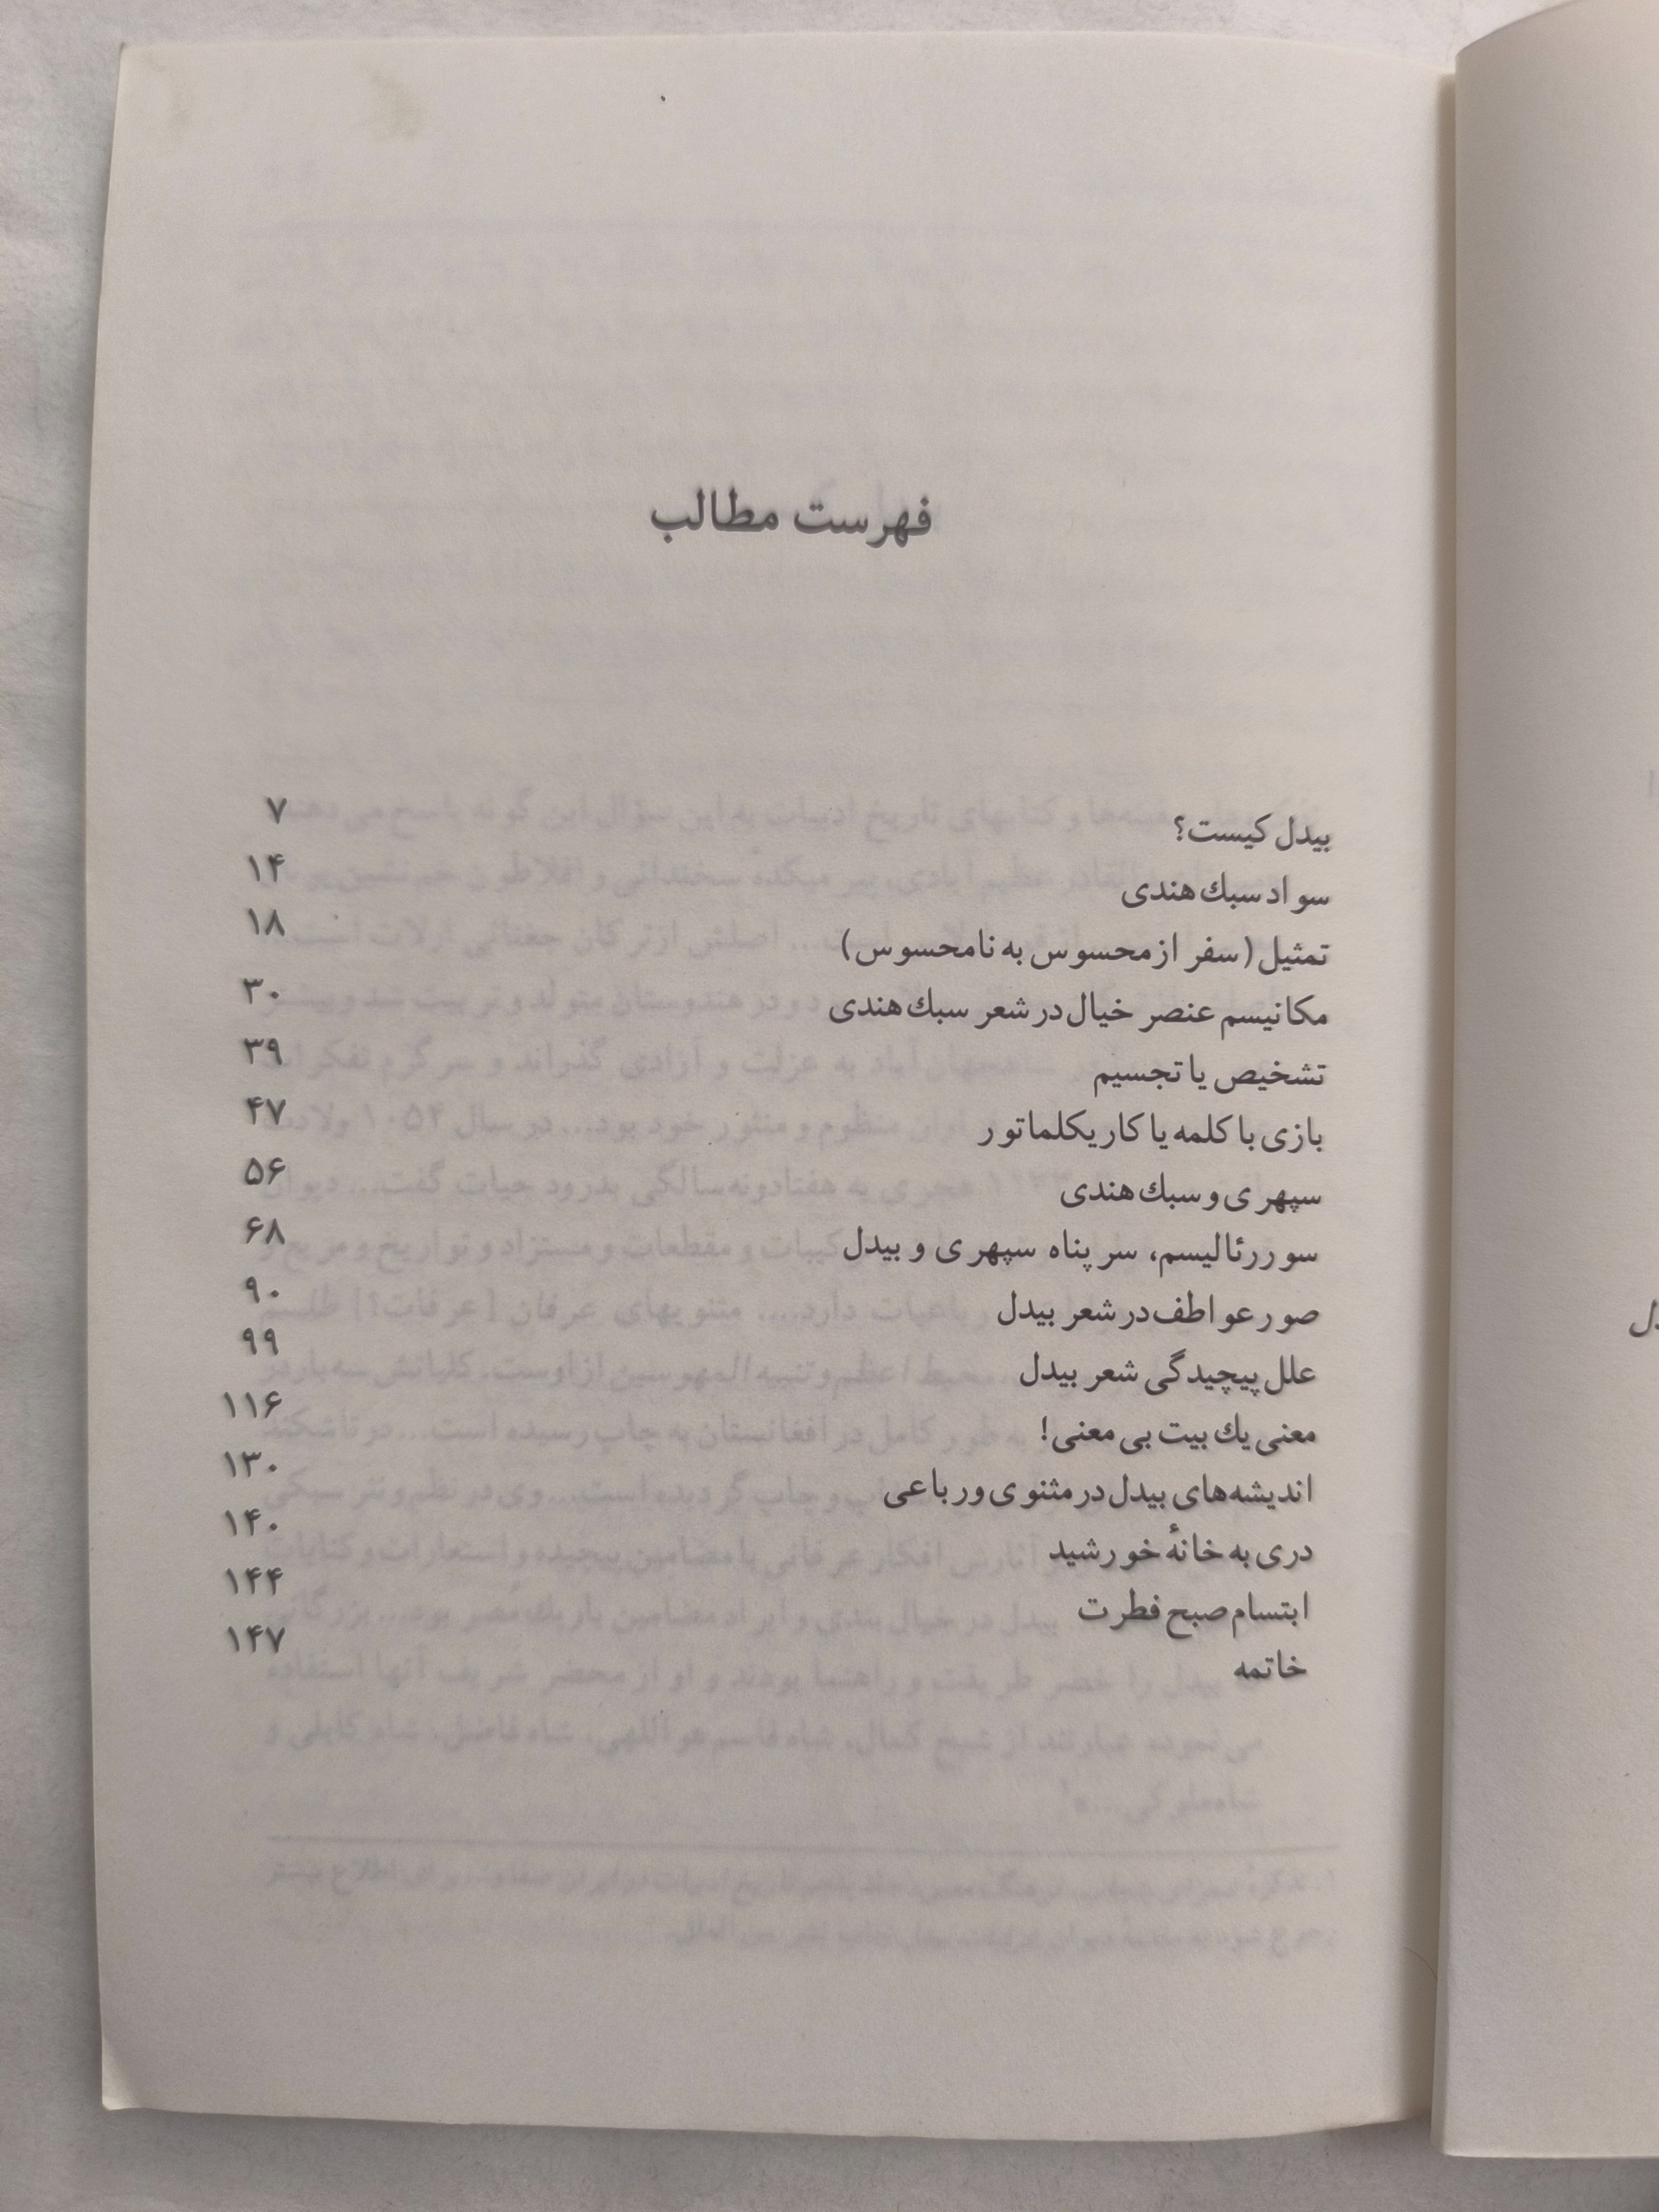 فهرست مطالب
بیدل کیست؟ ۷
سواد سبك هندی ۱۴
تمثیل (سفر از محسوس به نامحسوس) ۱۸
مکانیسم عنصر خیال در شعر سبك هندی ۳۰
تشخیص یا تجسیم ۳۹
بازی با کلمه یا کاریکلماتور ۴۷
سپهری و سبك هندی ۵۶
سوررئالیسم، سر پناه سپهری و بیدل ۶۸
صور عواطف در شعر بیدل ۹۰
علل پیچیدگی شعر بیدل ۹۹
معنی یك بیت بی معنی! ۱۱۶
اندیشه‌های بیدل در مثنوی و رباعی ۱۳۰
دری به خانهٔ خورشید ۱۴۰
ابتسام صبح فطرت ۱۴۴
خاتمه ۱۴۷